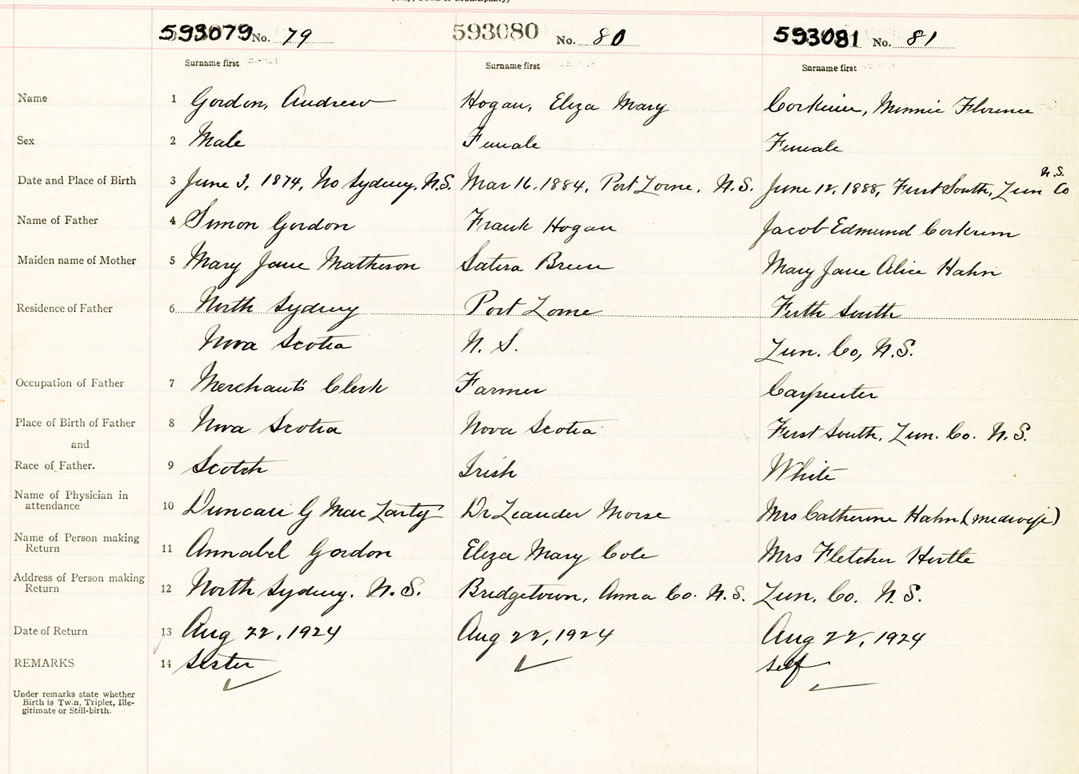 593079 No. 79 593080 No. 80 593081 No. 81
Surname first Surname first Surname first
Name 1 Gordon, Andrew Hogan, Eliza Mary Corkum, Minnie Florence
Sex 2 Male Female Female
Date and Place of Birth 3 June 3, 1874, No Sydney, N.S. Mar 16, 1884, Port Lorne, N.S. June 12, 1888, First South, Lun Co N.S.
Name of Father 4 Simon Gordon Frank Hogan Jacob Edmund Corkum
Maiden name of Mother 5 Mary Jane Matheson Mary Jane Alice Hahn
Residence of Father 6 North Sydney Port Lorne South
Nova Scotia N. S. Lun. Co, N.S.
Occupation of Father 7 Merchant's Clerk Farmer Carpenter
Place of Birth of Father 8 Nova Scotia Nova Scotia First South, Lun. Co. N.S.
and
Race of Father. 9 Scotch Irish White
Name of Physician in
attendance 10 Duncan G Dr Leander Morse Mrs Catherine Hahn (midwife)
Name of Person making
Return 11 Annabel Gordon Eliza Mary Cole Mrs Fletcher Hirtle
Address of Person making
Return 12 North Sydney, N.S. Bridgetown, Anna Co. N.S. Lun. Co. N.S.
Date of Return 13 Aug 22, 1924 Aug 22, 1924 Aug 22, 1924
REMARKS 14 Sister self
Under remarks state whether
Birth is Twin, Triplet, Ille-
gitimate or Still-birth.